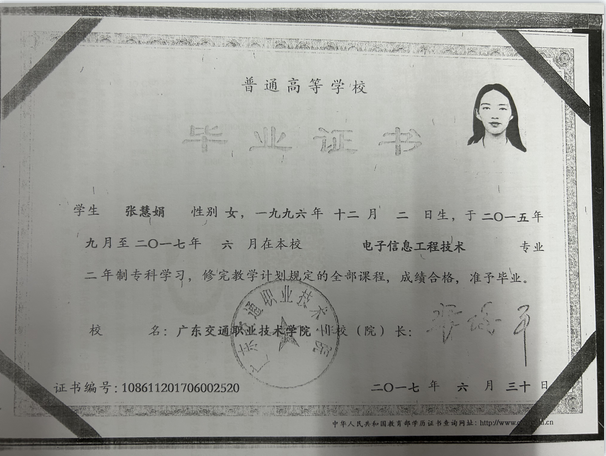 普通高等学校
毕业证书
学生 张慧娟 性别 女，一九九六年 十二 月 二 日生，于二〇一五年
九月至二〇一七年 六 月在本校 电子信息工程技术 专业
二年制专科学习，修完教学计划规定的全部课程，成绩合格，准予毕业。
校 名：广东交通职业技术学院 校（院）长：
证书编号：108611201706002520
二〇一七 年 六 月 三十 日
中华人民共和国教育部学历证书查询网址：http://www.